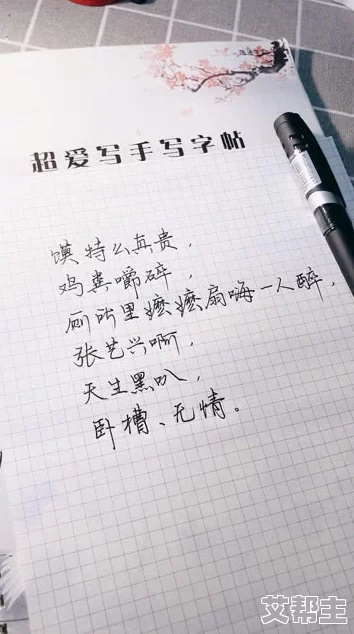 超爱写手写字帖
馍特么真贵，
鸡粪嚼碎，
厕所里嬷嬷扇嗨一人醉，
张艺兴啊，
天生黑叭，
卧槽、无情。
艾帮主